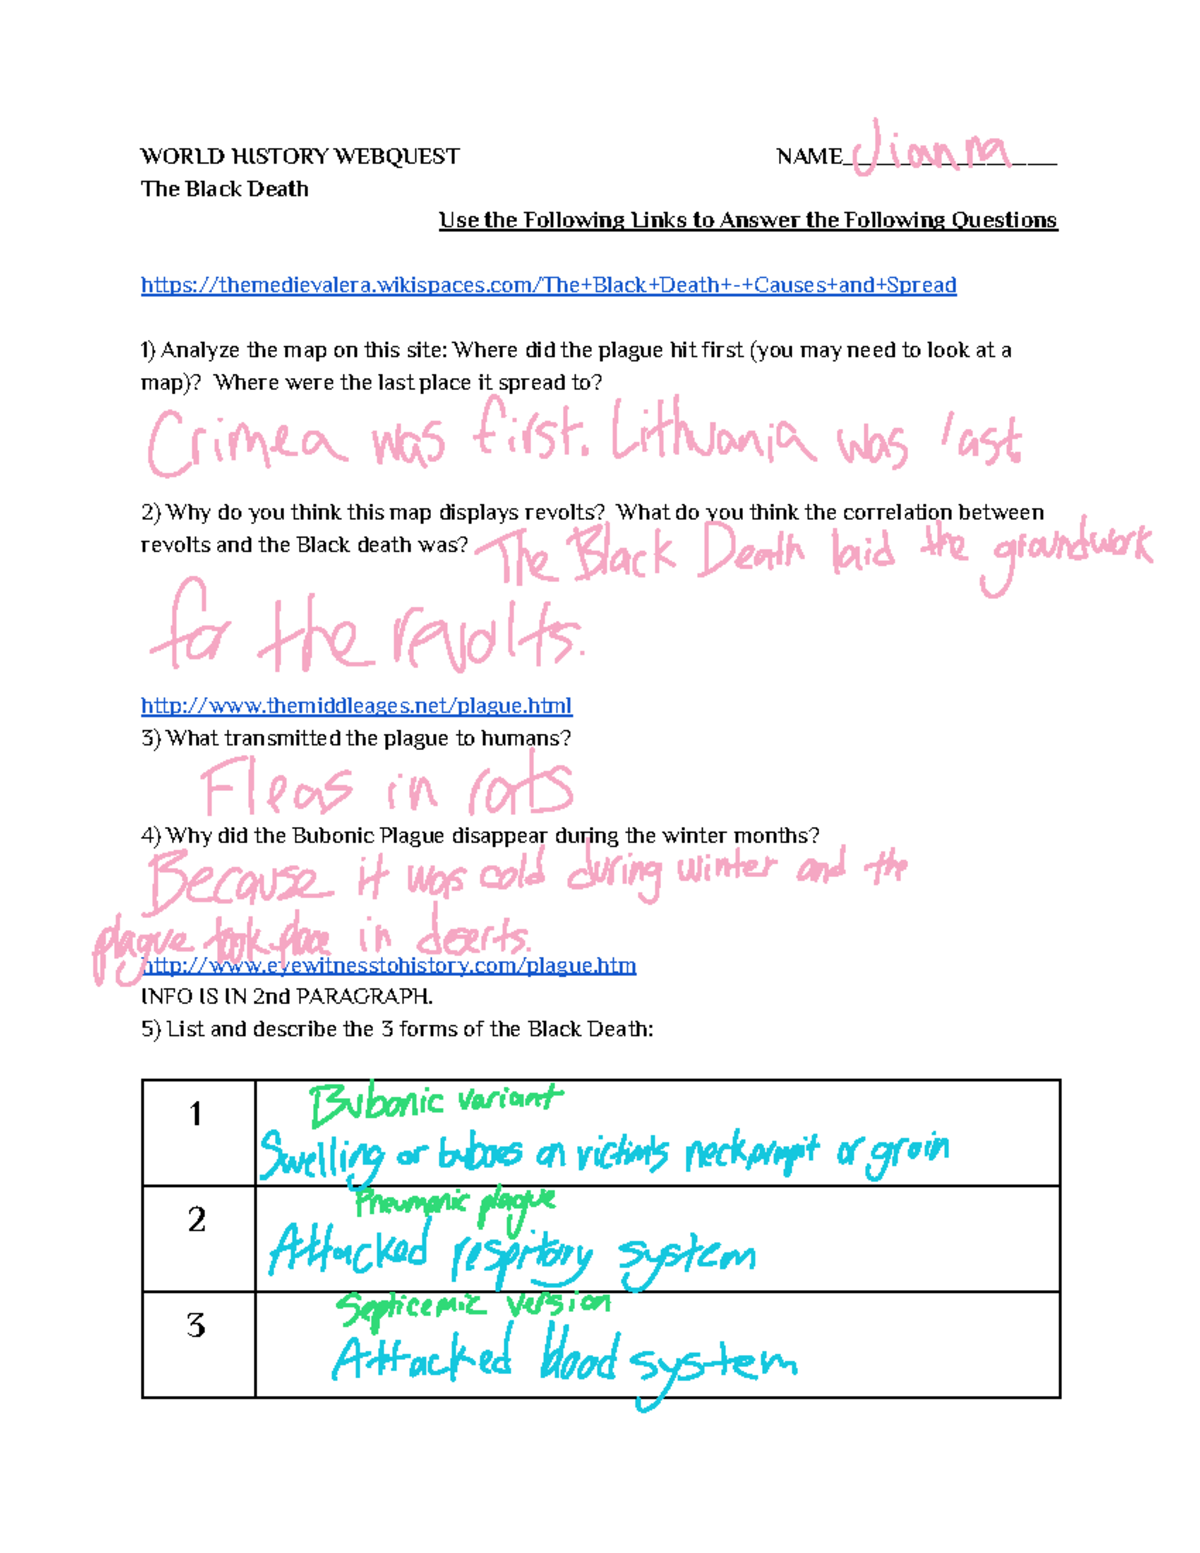 WORLD HISTORY WEBQUEST NAME Jianna
The Black Death
Use the Following Links to Answer the Following Questions
https://themedievalera.wikispaces.com/The+Black+Death+-+Causes+and+Spread
1) Analyze the map on this site: Where did the plague hit first (you may need to look at a
map)? Where were the last place it spread to?
Crimea was first. Lithuania was last.
2) Why do you think this map displays revolts? What do you think the correlation between
revolts and the Black death was? The Black Death laid the groundwork
for the revolts.
http://www.themiddleages.net/plague.html
3) What transmitted the plague to humans?
Fleas in rats
4) Why did the Bubonic Plague disappear during the winter months?
Because it was cold during winter and the
plague took place in deserts.
http://www.eyewitnesstohistory.com/plague.htm
INFO IS IN 2nd PARAGRAPH.
5) List and describe the 3 forms of the Black Death:
1 Bubonic variant
Swelling or buboes on victim's neck, armpit or groin
2 Pneumonic plague
Attacked respitory system
3 Septicemic version
Attacked blood system